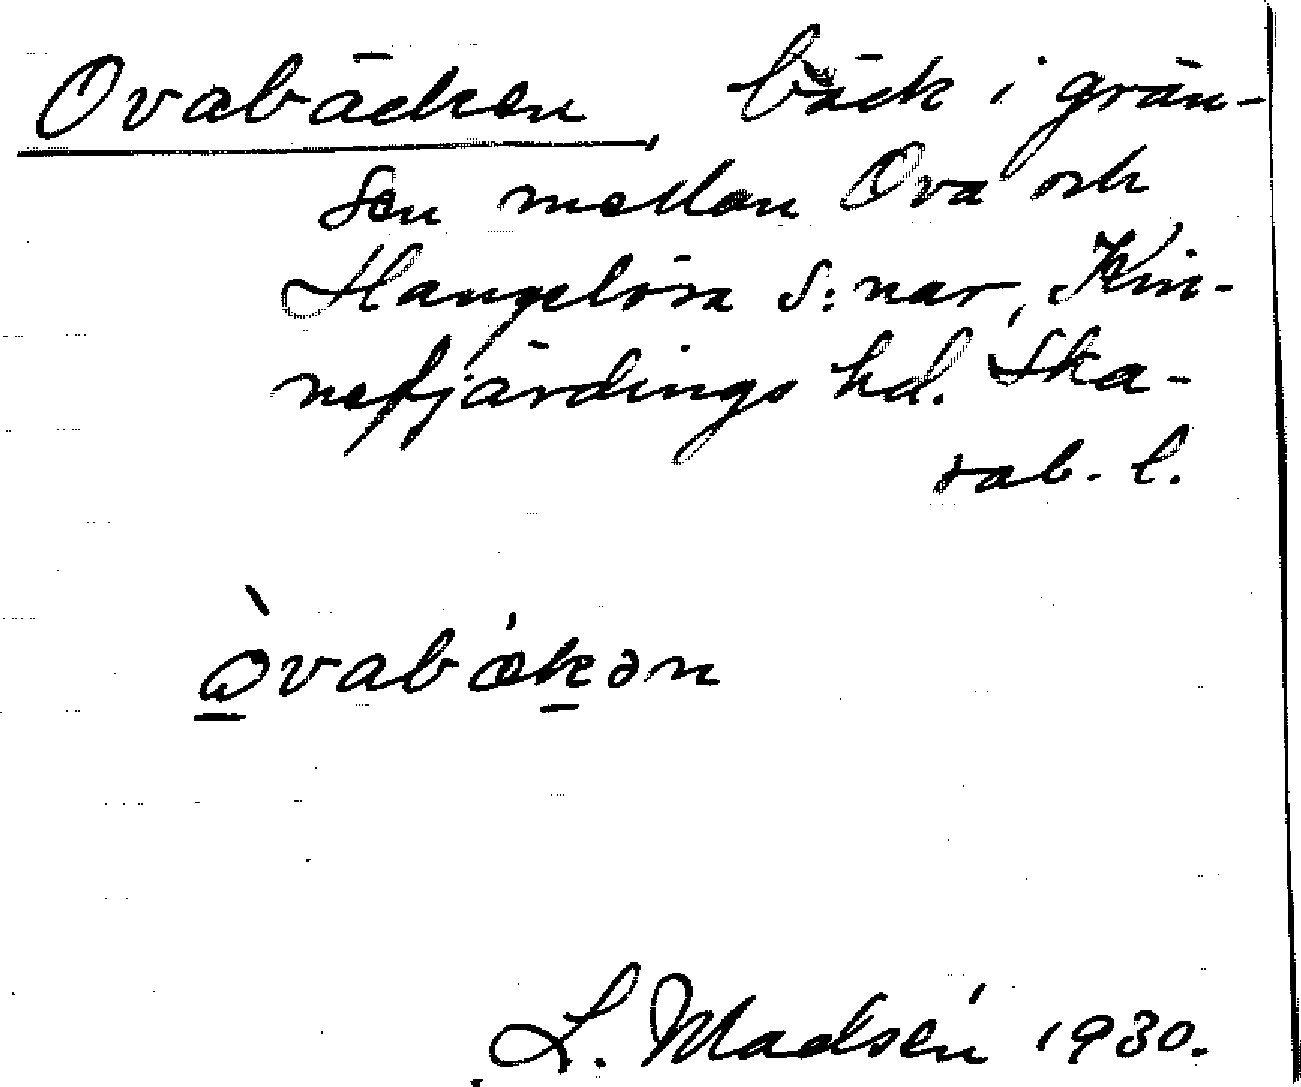 Ovabäcken, bäck i grän-
sen mellan Ova och
Hangelösa s:nar, Kin-
nefjärdings hd. Ska-
rab. l.
òvabǽkən
L. Madsén 1930.